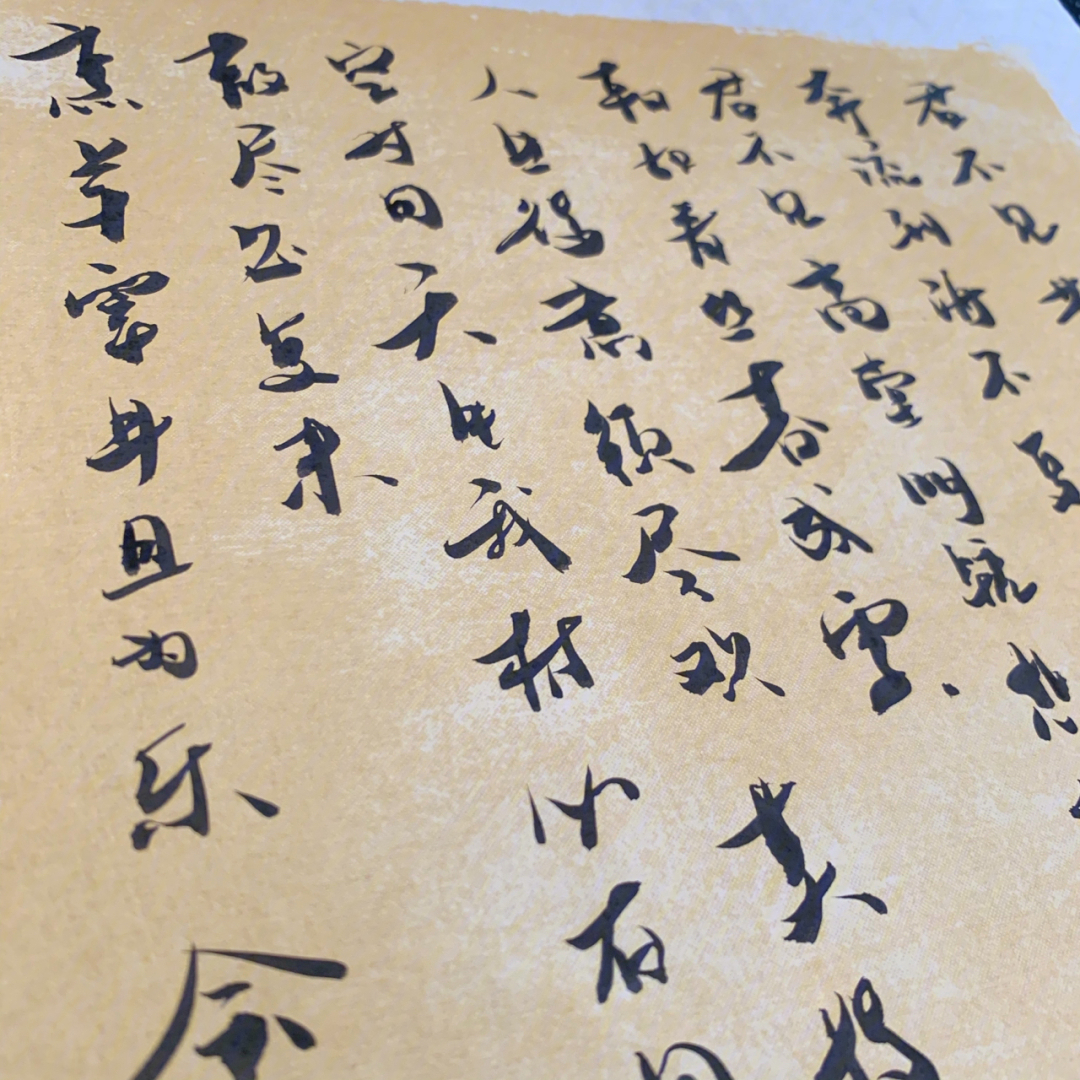 君不见
奔流到海不复
君不见高堂明镜悲
朝如青丝暮成雪
人生得意须尽欢莫使
空对月天生我材必有用
散尽还复来
烹羊宰牛且为乐会